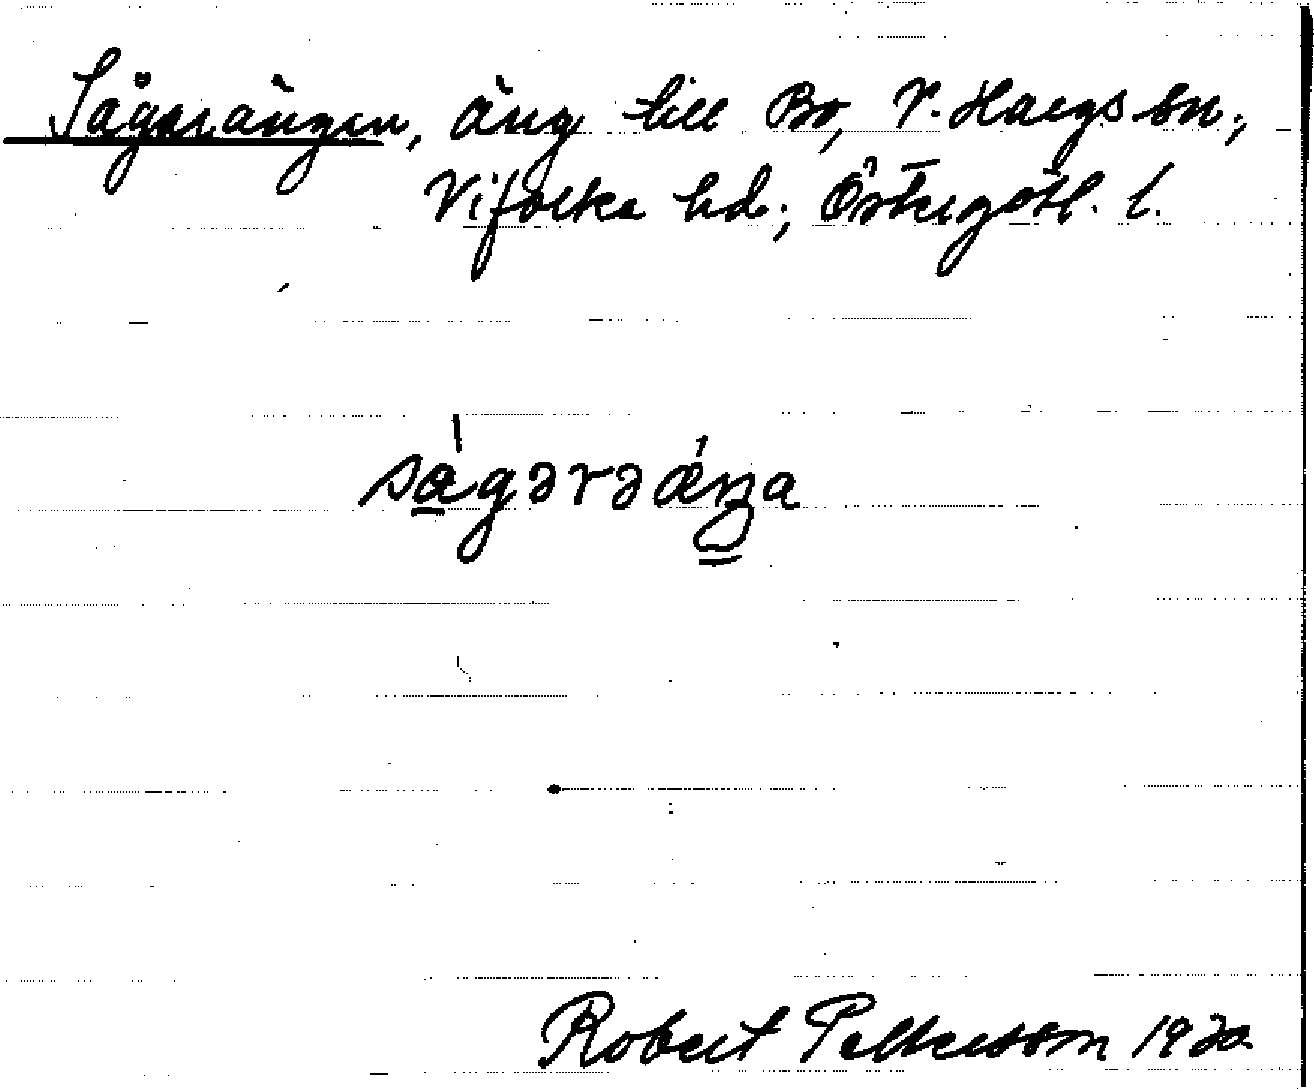 Sågareängen, äng till Bo, V. Hargs sn.,
Vifolka hd., Östergötl. l.
sågərəäŋa
Robert Pettersson 1930